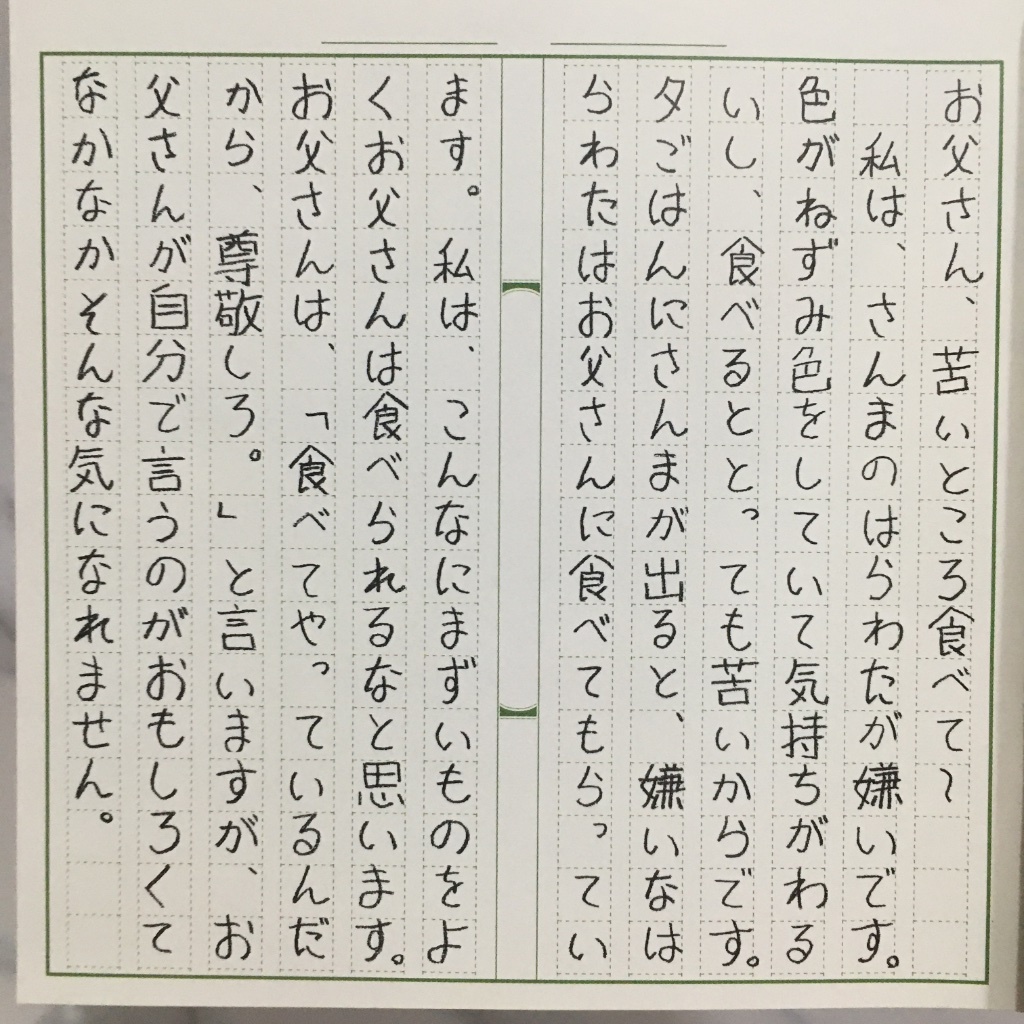 お父さん、苦いところ食べて〜
私は、さんまのはらわたが嫌いです。
色がねずみ色をしていて気持ちがわる
いし、食べるととっても苦いからです。
夕ごはんにさんまが出ると、嫌いなは
らわたはお父さんに食べてもらってい
ます。私は、こんなにまずいものをよ
くお父さんは食べられるなと思います。
お父さんは、「食べてやっているんだ
から、尊敬しろ。」と言いますが、お
父さんが自分で言うのがおもしろくて
なかなかそんな気になれません。